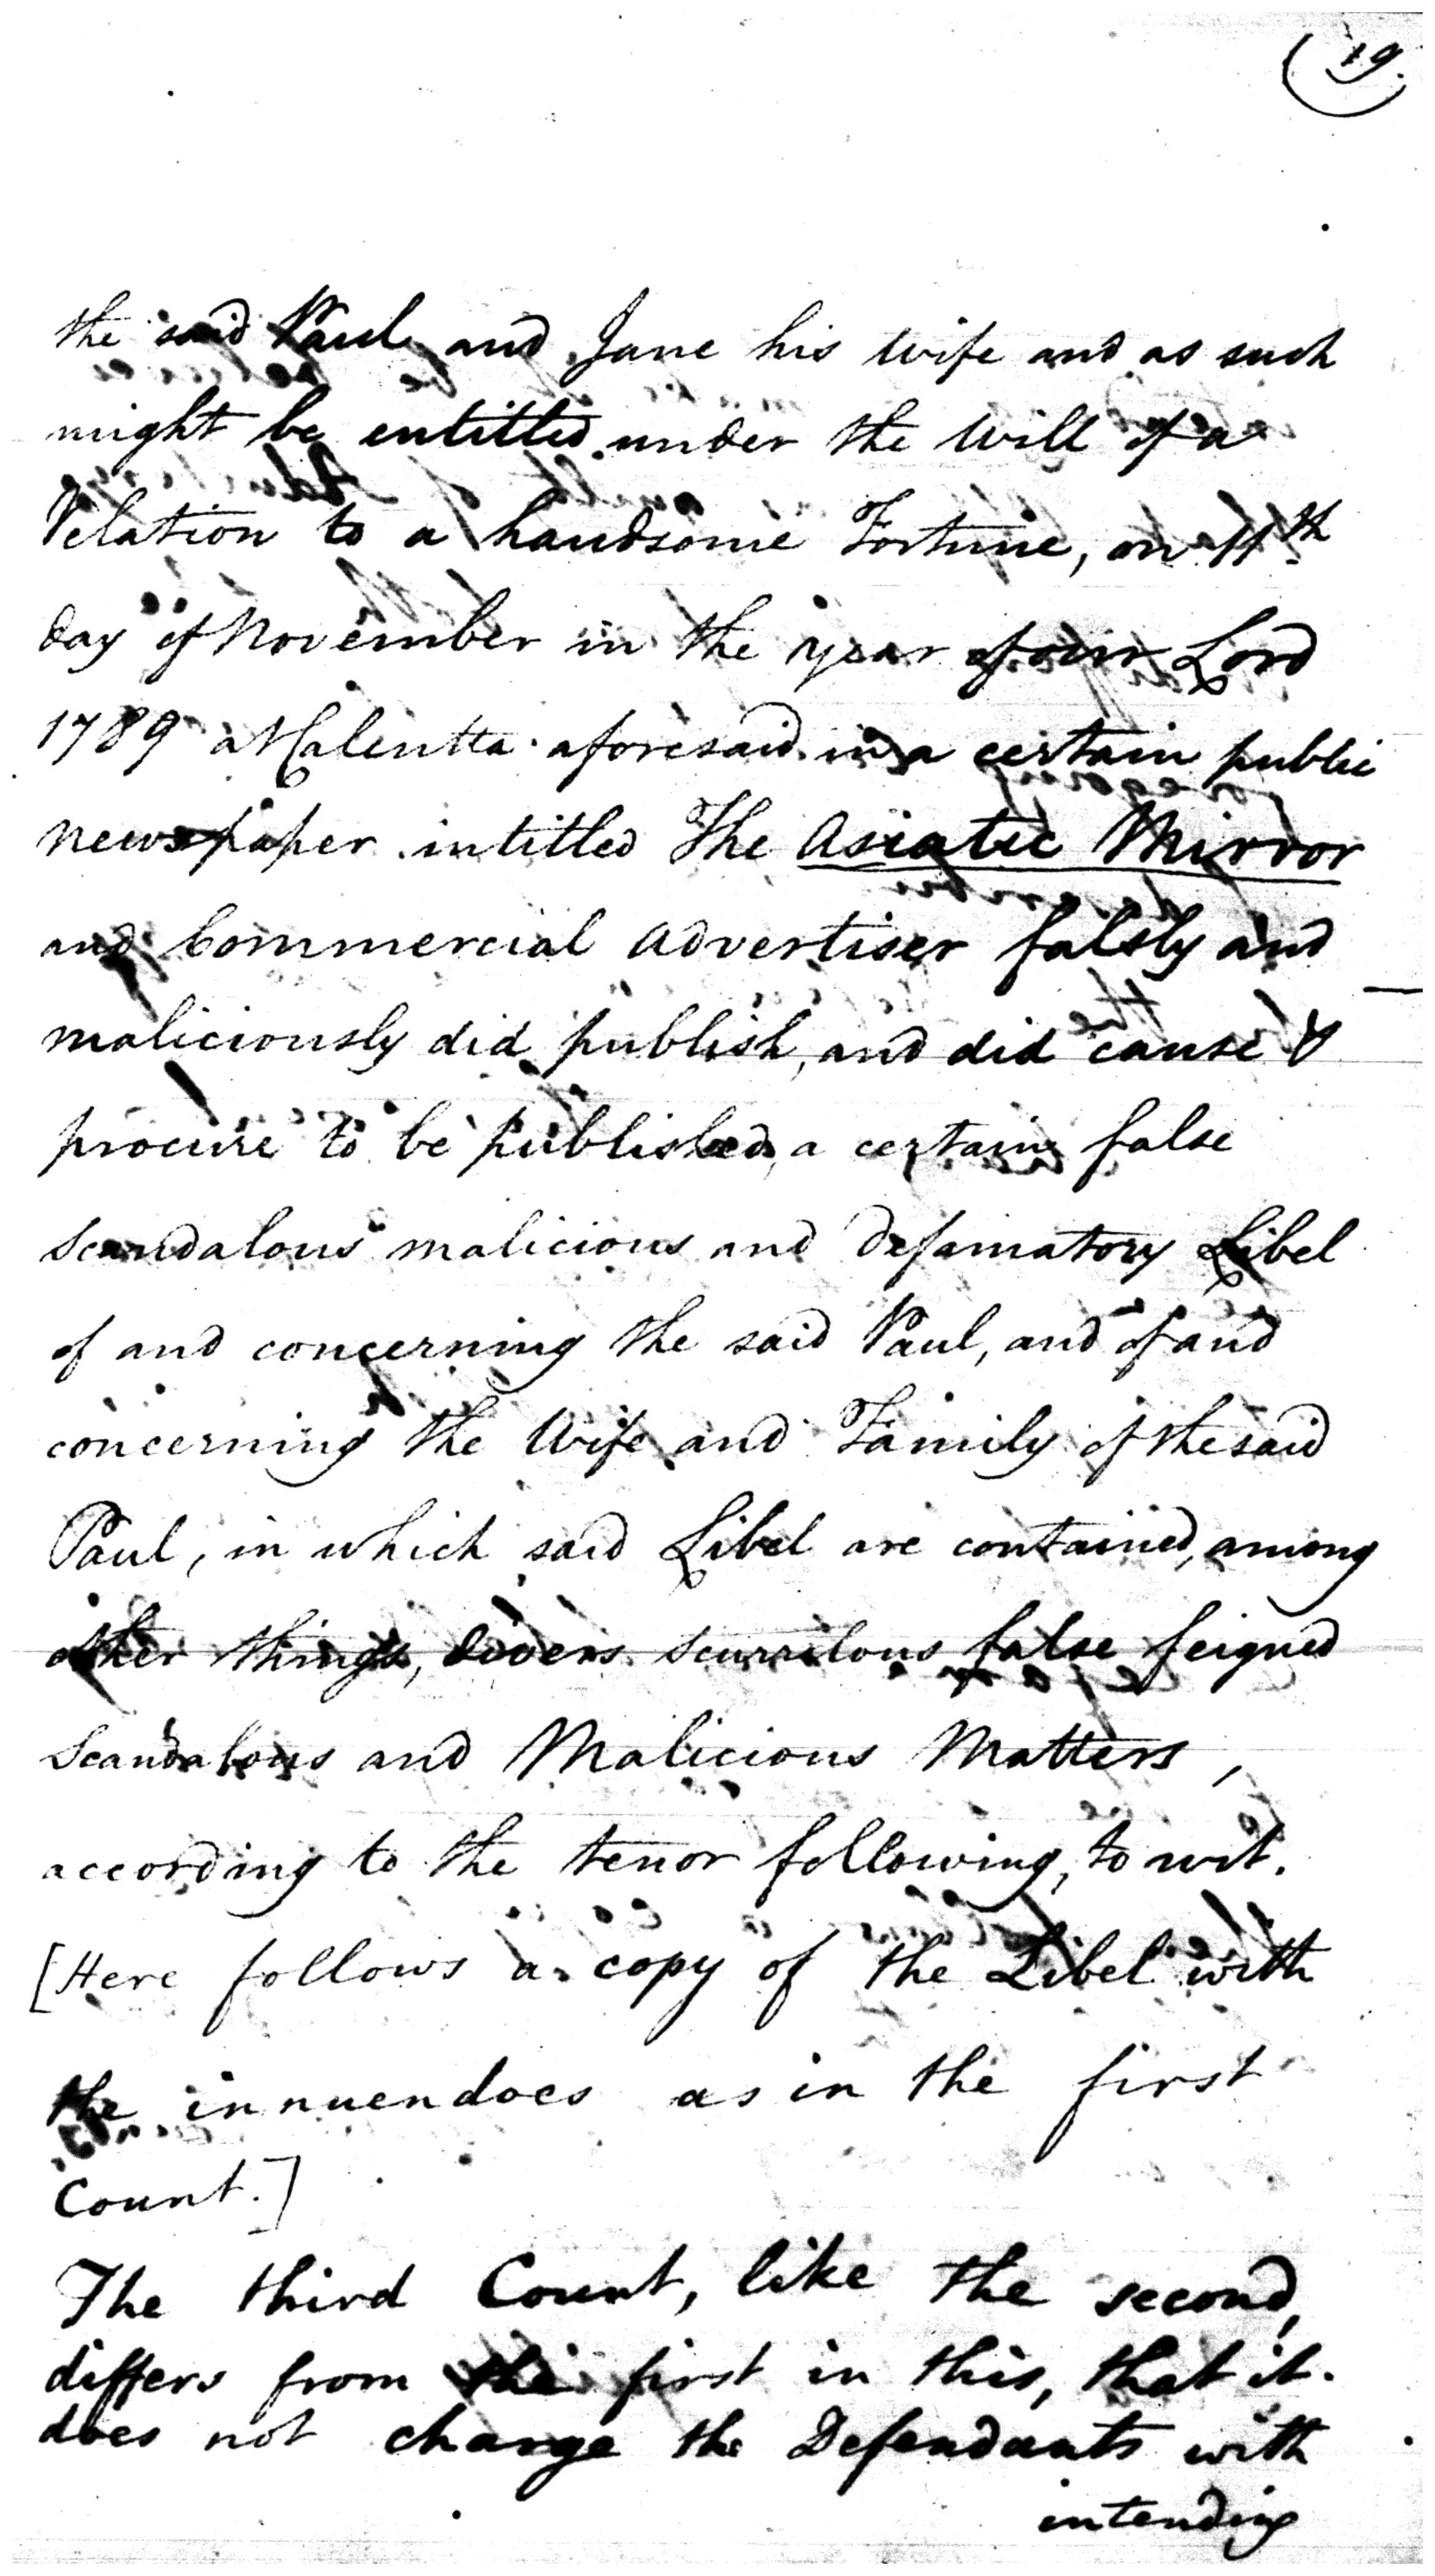 19.
the said Paul and Jane his wife and as such
might be entitled under the Will of a
Relation to a handsome Fortune, on 11th
day of November in the year of our Lord
1789 at Calcutta aforesaid in a certain public
newspaper intitled The Asiatic Mirror
and Commercial Advertiser falsly and
maliciously did publish, and did cause &
procure to be published, a certain false
scandalous malicious and defamatory Libel
of and concerning the said Paul, and of and
concerning the Wife and Family of the said
Paul, in which said Libel are contained, among
other things, divers scurrilous false feigned
Scandalous and Malicious Matters,
according to the tenor following, to wit.
[Here follows a copy of the Libel with
the innuendoes as in the first
Count.]
The third Count, like the second,
differs from the first in this, that it
does not charge the Defendants with
intending